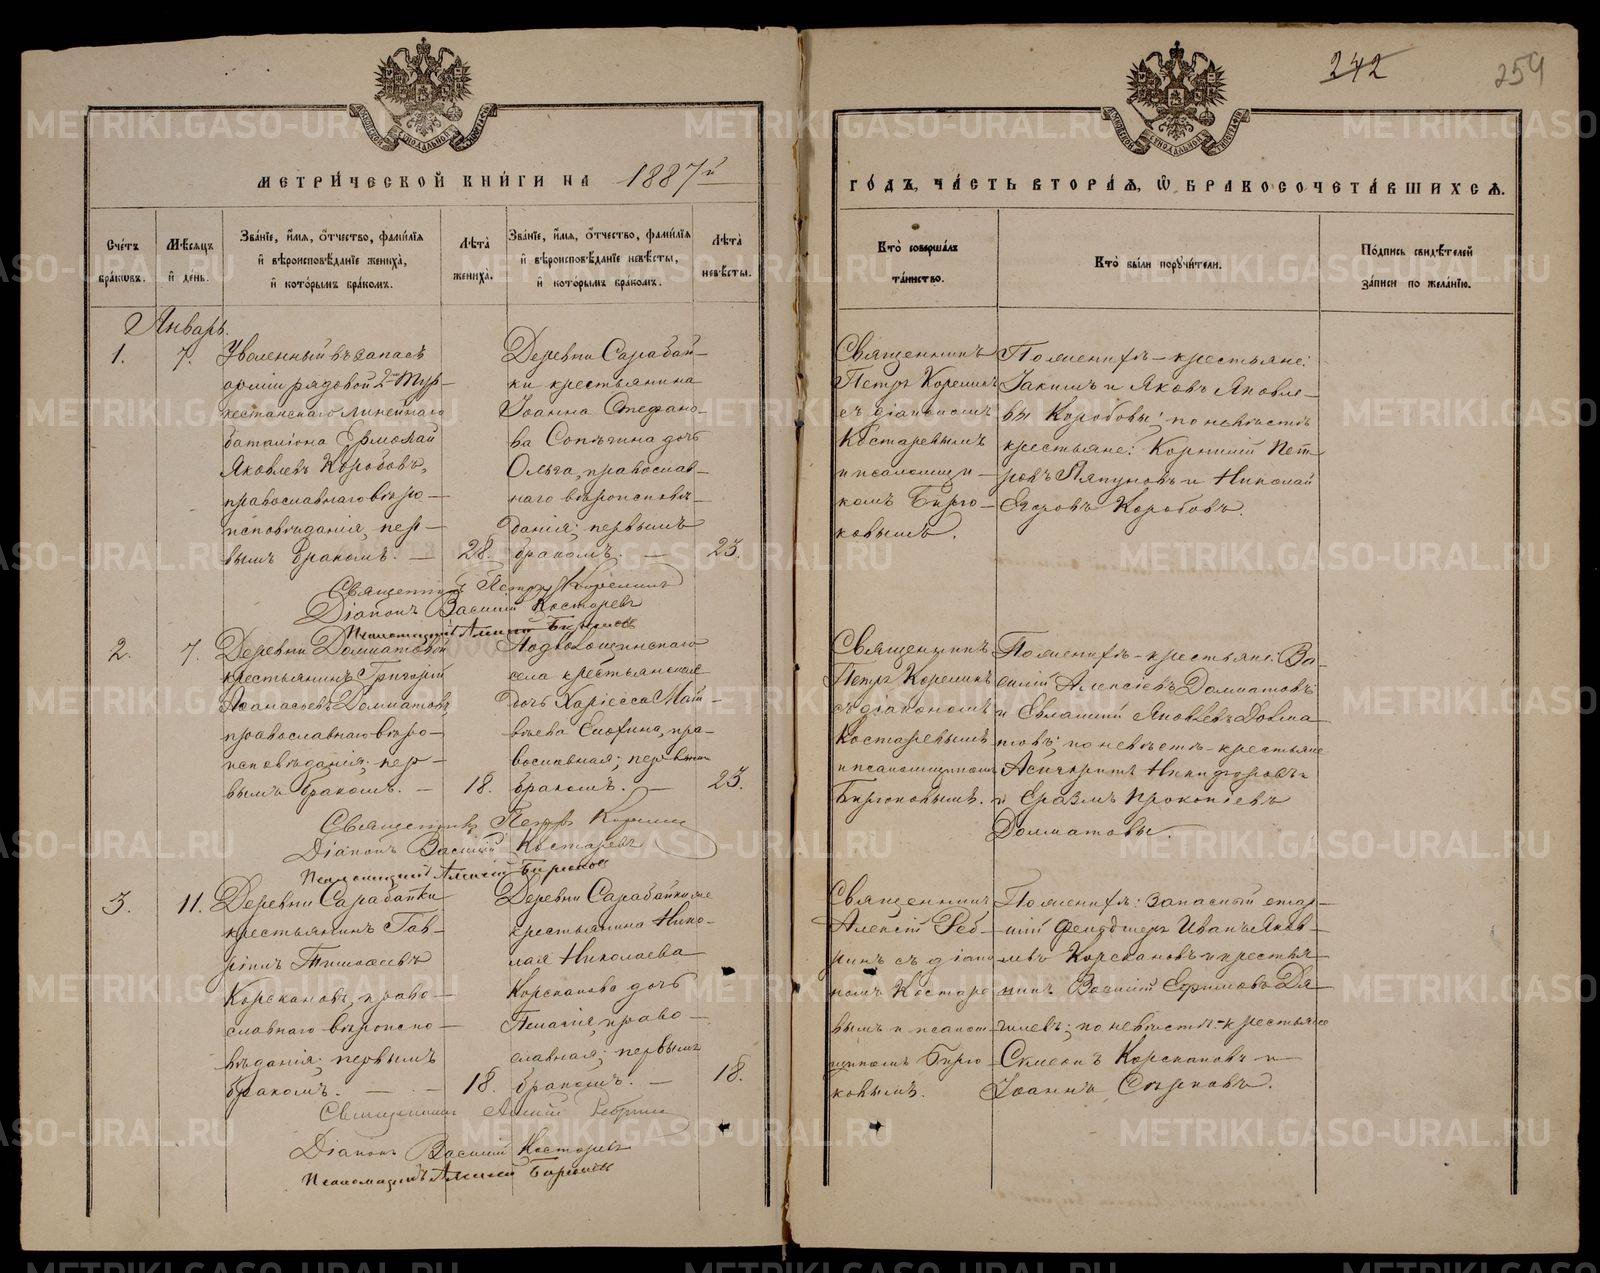 242
259
МЕТРИЧЕСКОЙ КНИГИ НА 1887й
ГОДЪ, ЧАСТЬ ВТОРАЯ, Ѿ БРАКОСОЧЕТАВШИХСЯ.
Счетъ браковъ.
Мѣсяцъ и день.
Званіе, имя, отчество, фамилія
и вѣроисповѣданіе жениха,
и которымъ бракомъ.
Лѣта жениха.
Званіе, имя, отчество, фамилія
и вѣроисповѣданіе невѣсты,
и которымъ бракомъ.
Лѣта невѣсты.
Кто совершалъ
таинство.
Кто были поручители.
Подпись свидѣтелей
записи по желанію.
Январь.
1.
7.
Уволенный въ запасъ
арміи рядовой 2го Тур-
кестанскаго линейнаго
баталіона Ермолай
Яковлевъ Коробовъ,
православнаго вѣро-
исповѣданія, пер-
вымъ бракомъ. —
28.
Деревни Сарабай-
ки крестьянина
Іоанна Стефано-
ва дочь
Ольга, православ-
наго вѣроисповѣ-
данія; первымъ
бракомъ. —
23.
Священникъ
Петръ Корелинъ
съ діакономъ
Костаревымъ
и псаломщи-
комъ Бирю-
ковымъ.
По женихѣ - крестьяне:
Іакимъ и Яковъ Яковле-
вы Коробовы; по невѣстѣ
крестьяне: Корнилій Пет-
ровъ Ляпуновъ и Николай
Коробовъ.
Священникъ Петръ Корелинъ
Діаконъ Василій Костаревъ
Псаломщикъ Алексій Бирюковъ
2.
7.
Деревни Долматовой
крестьянинъ Григорій
Аѳанасьевъ Долматовъ,
православнаго вѣро-
исповѣданія; пер-
вымъ бракомъ. —
18.
села крестьянская
дочь Харіесса Мат-
вѣева пра-
вославная; первымъ
бракомъ. —
23.
Священникъ
Петръ Корелинъ
съ діакономъ
Костаревымъ
и псаломщикомъ
Бирюковымъ.
По женихѣ - крестьяне: Ва-
силій Алексіевъ Долматовъ
и Евлампій Яковлевъ Долма-
товъ; по невѣстѣ - крестьяне
Асинкритъ Никифоровъ
и Еразмъ Прокопіевъ
Долматовы.
Священникъ Петръ Корелинъ
Діаконъ Василій Костаревъ
Псаломщикъ Алексій Бирюковъ
3.
11.
Деревни Сарабайки
крестьянинъ Гав-
ріилъ
Корекановъ, право-
славнаго вѣроиспо-
вѣданія; первымъ
бракомъ. — —
18.
Деревни Сарабайки же
крестьянина Нико-
лая Николаева
Корекакова дочь
Пелагія, право-
славная; первымъ
бракомъ. —
18.
Священникъ
Алексій Реб-
ринъ съ діако
номъ Костаре
вымъ и псалом
щикомъ Бирю
ковымъ.
По женихѣ: запасный стар-
шій фельдшеръ Иванъ Яков-
левъ Корекановъ и крестья
нинъ Василій Ефимовъ Дя-
гилевъ; по невѣстѣ - крестьяне
Корекановъ и
Іоаннъ
Священникъ Алексій Ребринъ
Діаконъ Василій Костаревъ
Псаломщикъ Алексій Бирюковъ
METRIKI.GASO-URAL.RU